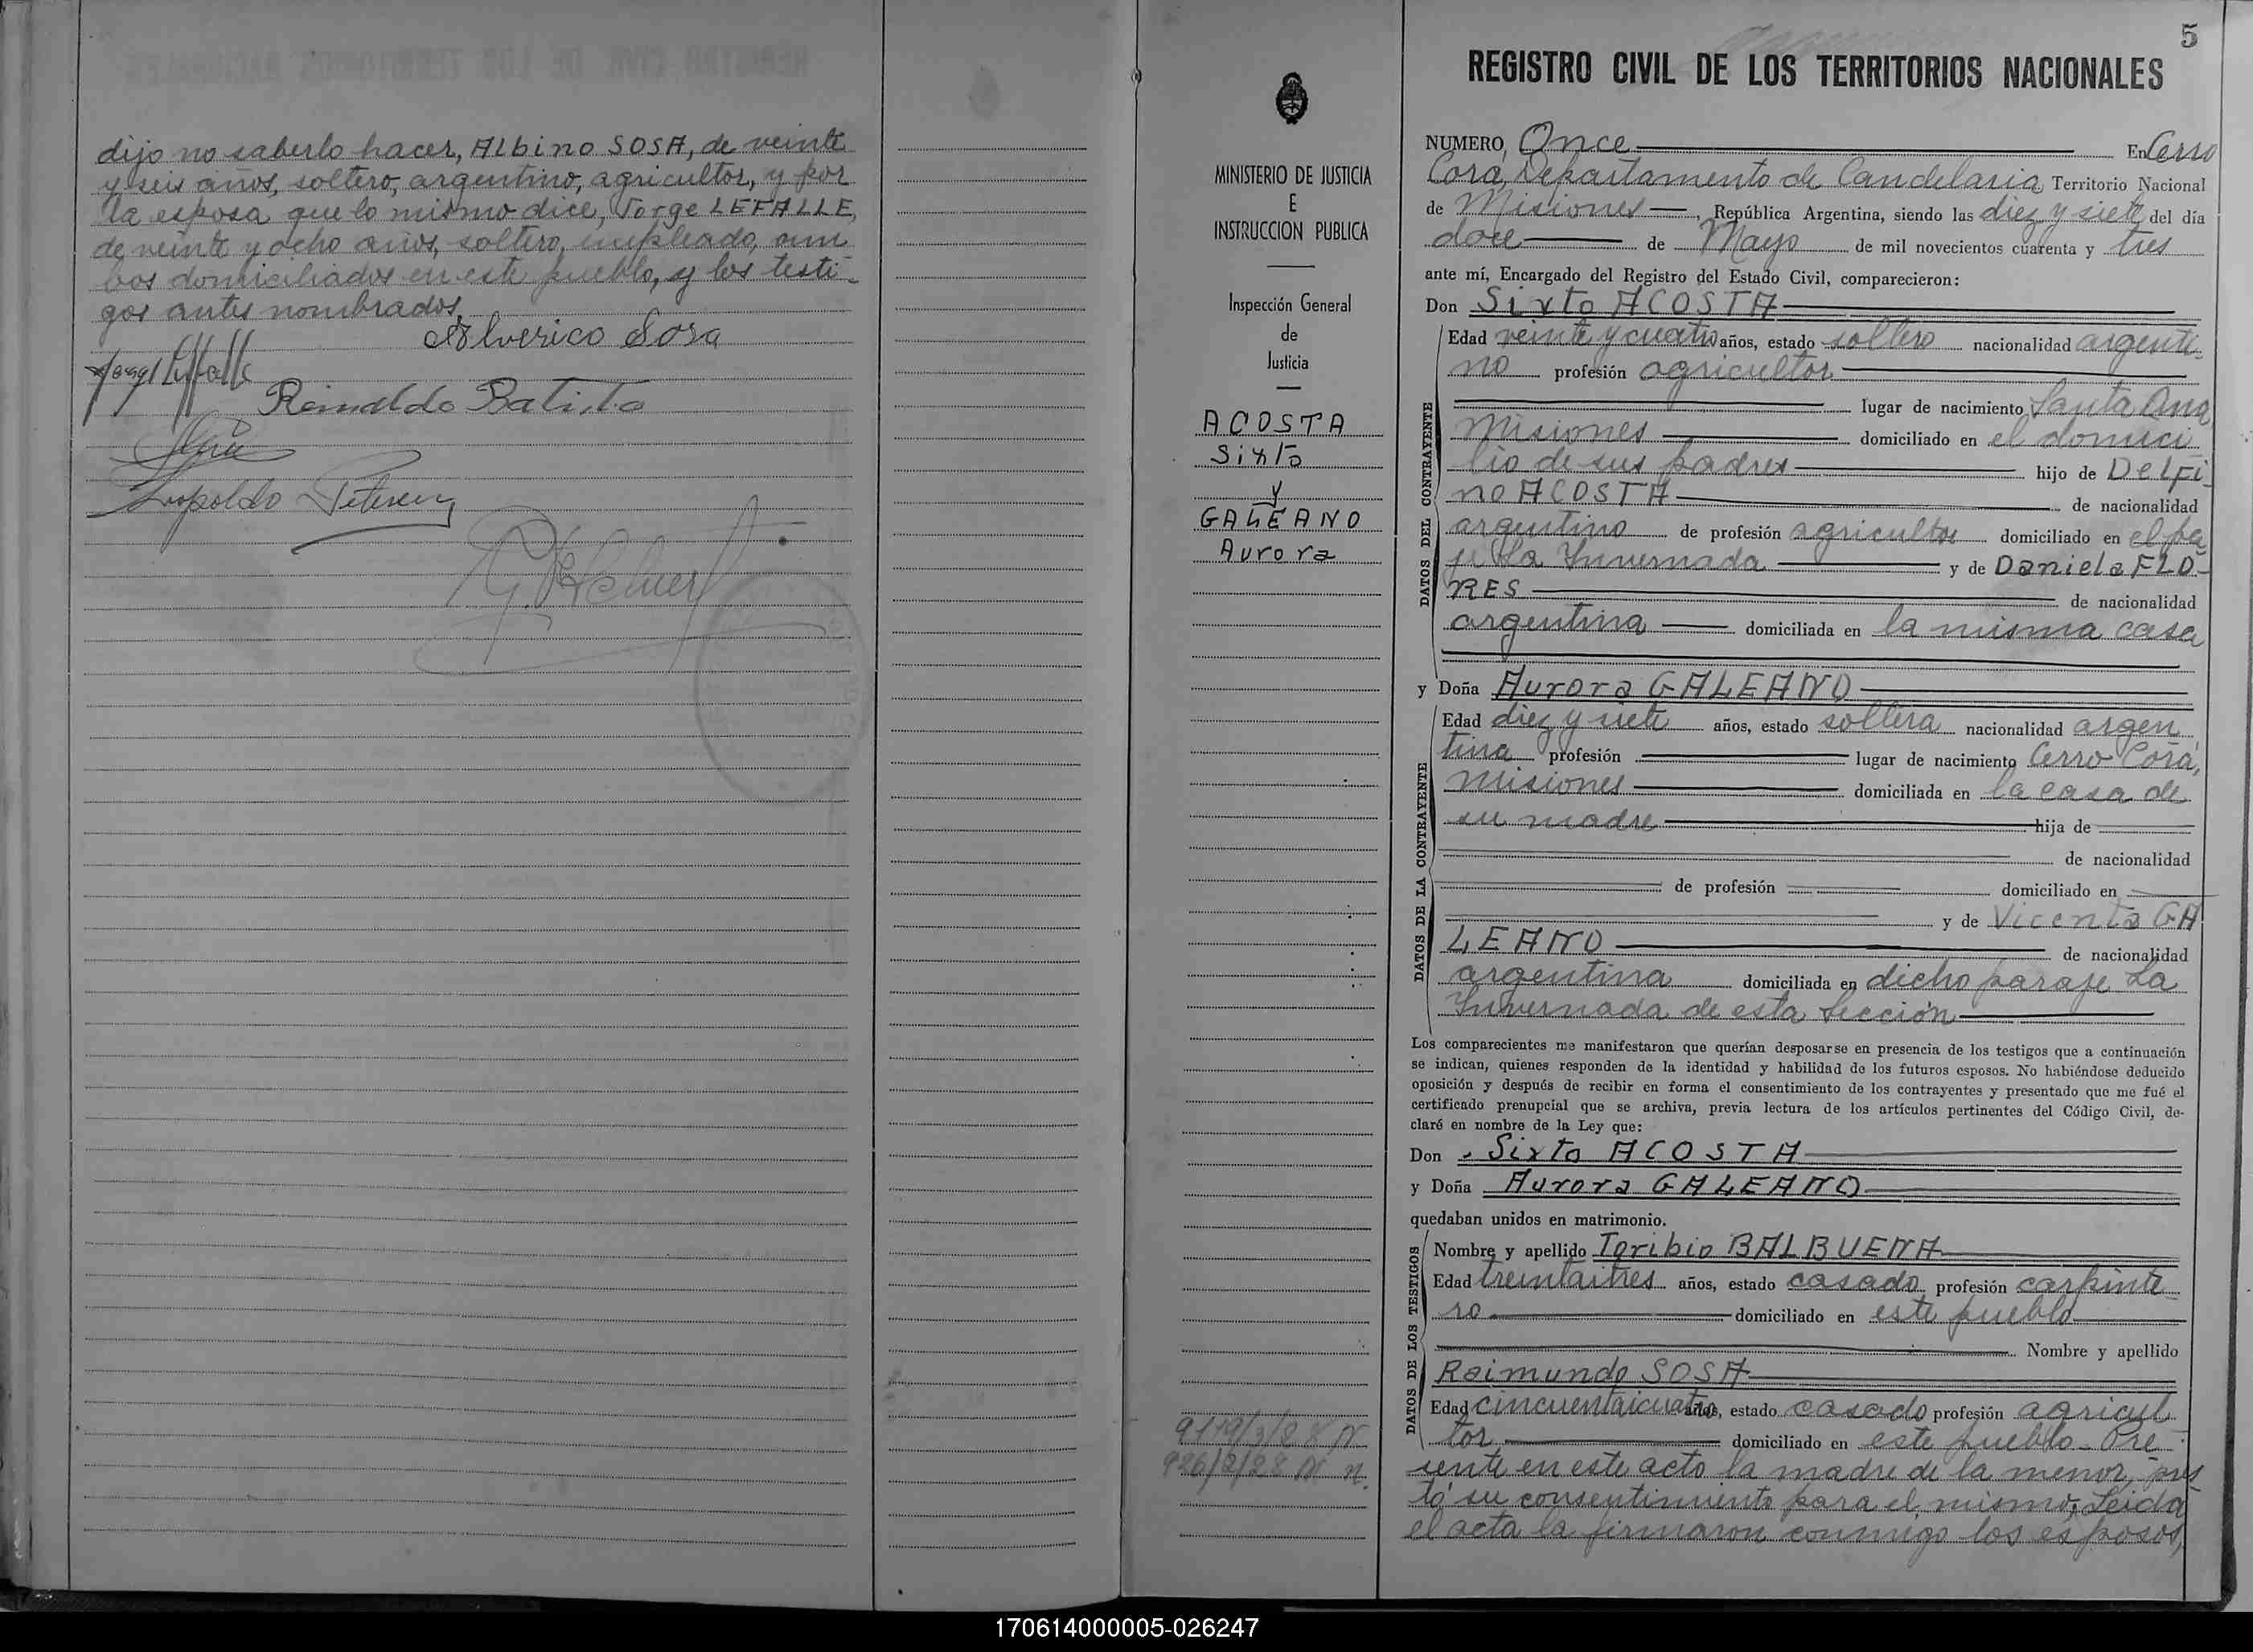 dijo no saberlo hacer, Albino SOSA, de veinte
y seis años, soltero, argentino, agricultor, y por
la esposa que lo mismo dice, Jorge LEFALLE,
de veinte y ocho años, soltero, empleado, am
bos domiciliados en este pueblo, y los testi-
gos antes nombrados.
Alverico Sosa
Reinaldo Batista
Leopoldo
MINISTERIO DE JUSTICIA
E
INSTRUCCION PUBLICA
Inspección General
de
Justicia
ACOSTA
Sixto
y
GALEANO
Aurora
5
REGISTRO CIVIL DE LOS TERRITORIOS NACIONALES
NUMERO, Once En Cerro
Corá, Departamento de Candelaria Territorio Nacional
de Misiones, República Argentina, siendo las diez y siete del día
doce de Mayo de mil novecientos cuarenta y tres
ante mí, Encargado del Registro del Estado Civil, comparecieron:
Don Sixto ACOSTA
DATOS DEL CONTRAYENTE
Edad veinte y cuatro años, estado soltero nacionalidad argenti-
no profesión agricultor
lugar de nacimiento Santa Ana
Misiones domiciliado en el domici
lio de sus padres hijo de DELFI-
NO ACOSTA de nacionalidad
argentino de profesión agricultor domiciliado en el para
je La Invernada y de Daniela FLO-
RES de nacionalidad
argentina domiciliada en la misma casa
y Doña Aurora GALEANO
DATOS DE LA CONTRAYENTE
Edad diez y siete años, estado soltera nacionalidad argen
tina profesión lugar de nacimiento Cerro Corá,
Misiones domiciliada en la casa de
su madre hija de
de nacionalidad
de profesión domiciliado en
y de Vicenta GA
LEANO de nacionalidad
argentina domiciliada en dicho paraje La
Invernada de esta Sección
Los comparecientes me manifestaron que querían desposarse en presencia de los testigos que a continuación
se indican, quienes responden de la identidad y habilidad de los futuros esposos. No habiéndose deducido
oposición y después de recibir en forma el consentimiento de los contrayentes y presentado que me fué el
certificado prenupcial que se archiva, previa lectura de los artículos pertinentes del Código Civil, de-
claré en nombre de la Ley que:
Don Sixto ACOSTA
y Doña Aurora GALEANO
quedaban unidos en matrimonio.
DATOS DE LOS TESTIGOS
Nombre y apellido Toribio BALBUENA
Edad treintaitres años, estado casado profesión carpinte
ro domiciliado en este pueblo
Nombre y apellido
Raimundo SOSA
Edad cincuentaicuatro años, estado casado profesión agricul
tor domiciliado en este pueblo. Pre-
sente en este acto la madre de la menor, pres
tó su consentimiento para el mismo. Leida
el acta la firmaron conmigo los esposos,
170614000005-026247